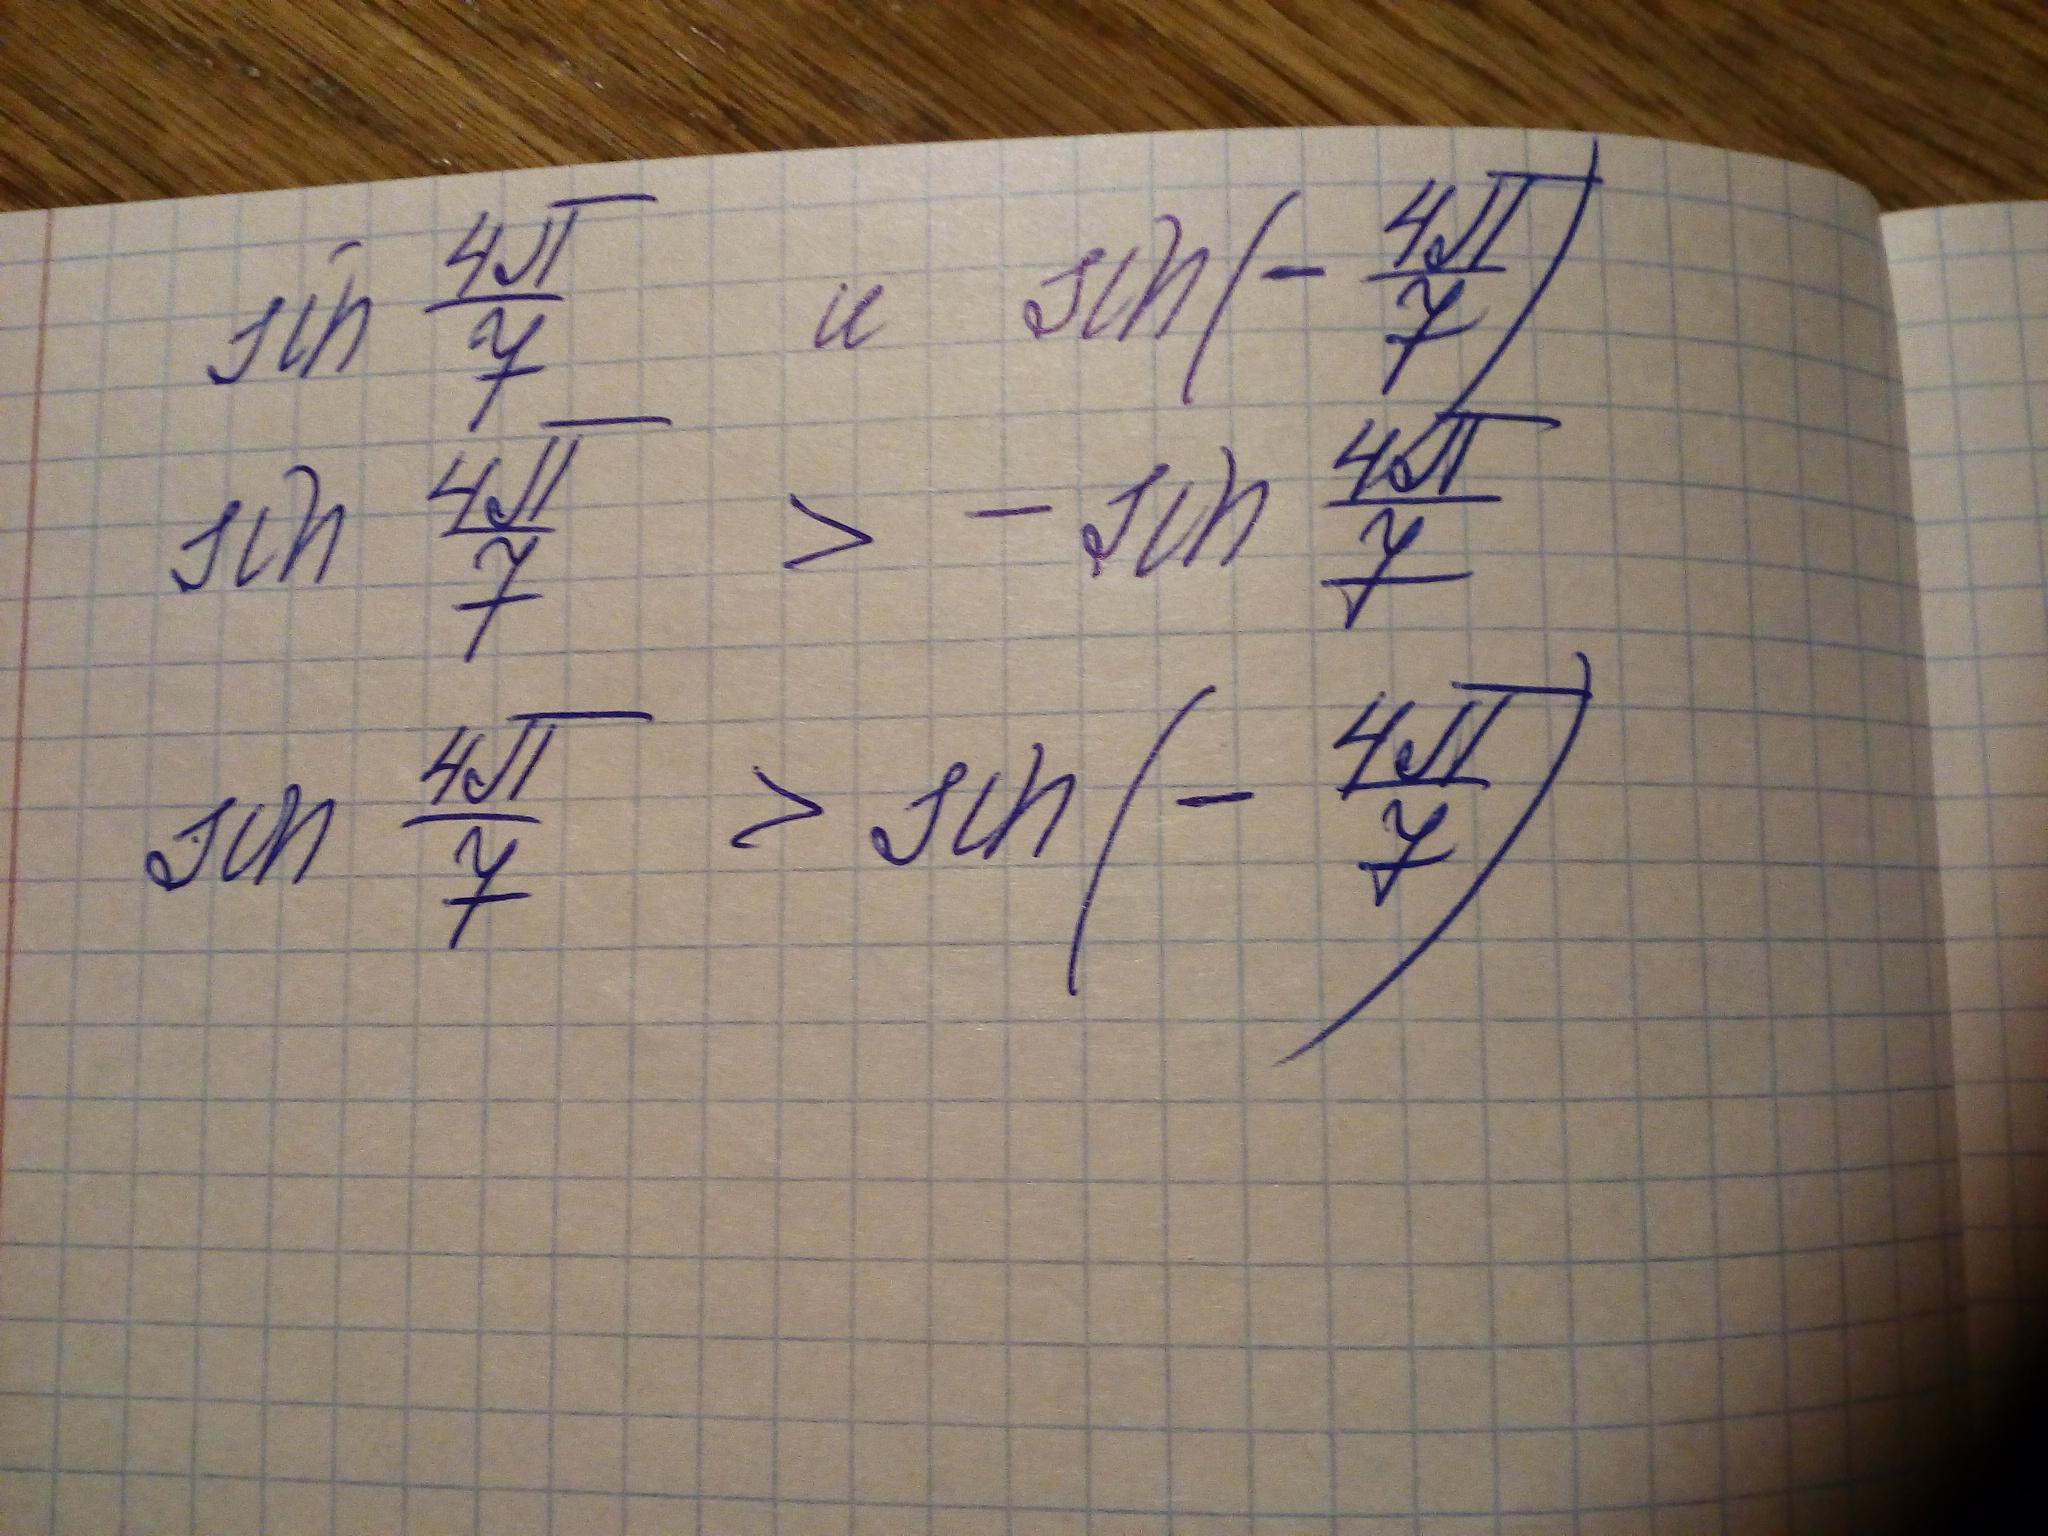 sin 4π/7 и sin(- 4π/7)
sin 4π/7 > - sin 4π/7
sin 4π/7 > sin(- 4π/7)